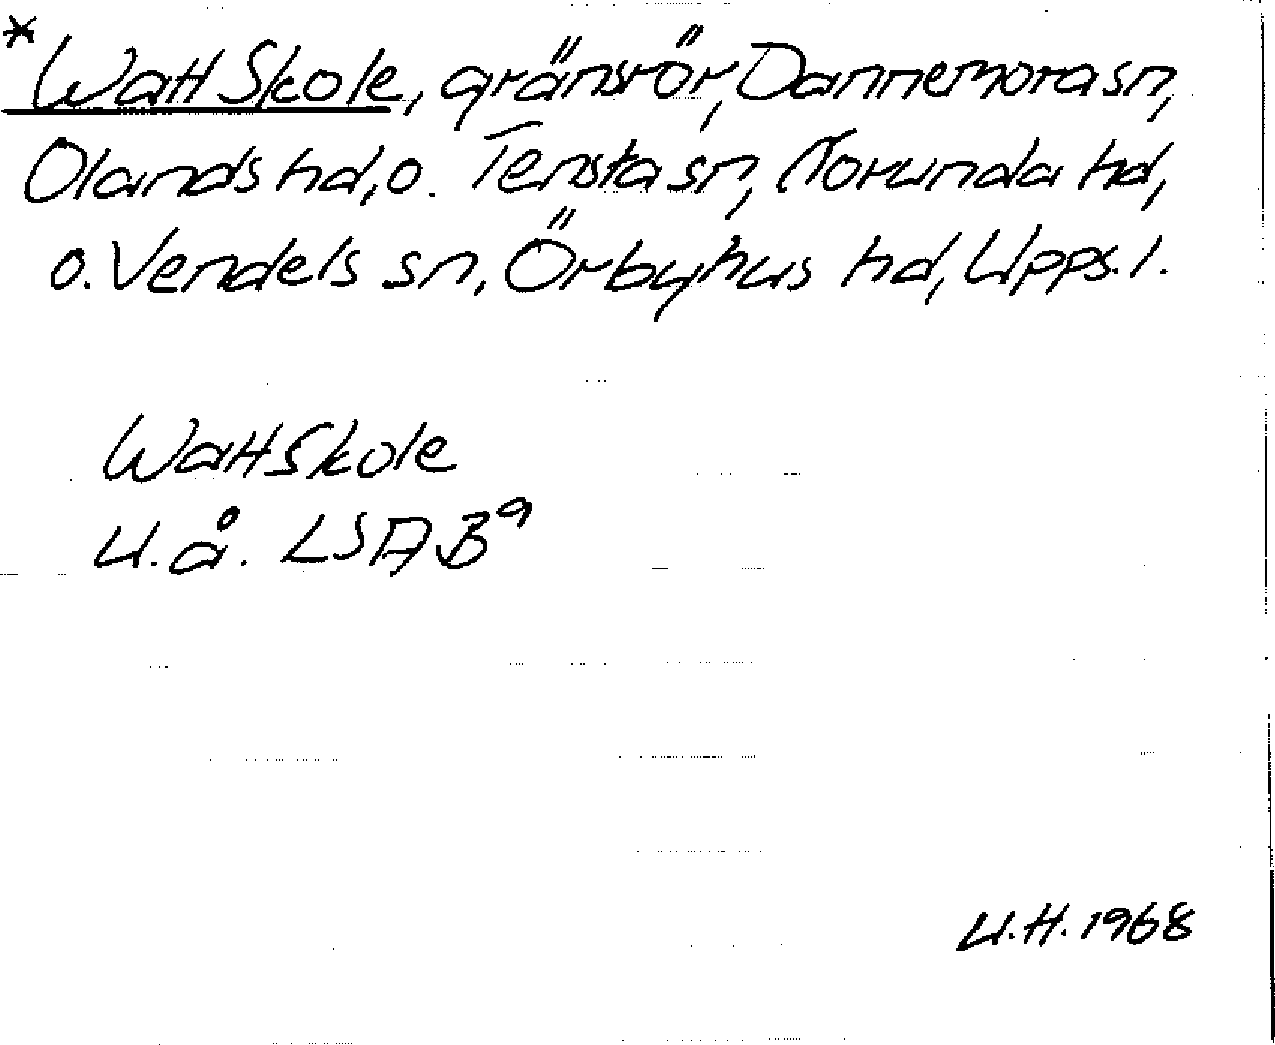 * Watt Skole, gränsrör, Dannemora sn,
Olands hd, o. Tensta sn, Norunda hd,
o. Vendels sn, Örbyhus hd, Upps. l.
Watt Skole
u.å. LSA B⁹
U.H. 1968